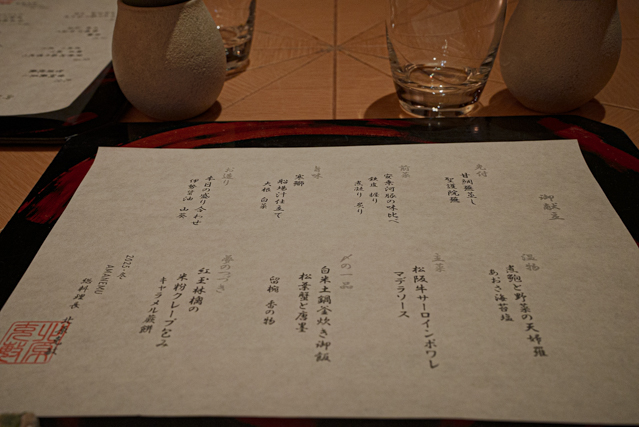 御献立
先付
甘鯛蕪蒸し
聖護院蕪
前菜
安乗河豚の味比べ
鉄皮 握り
煮凝り 炙り
旨味
寒鰤
船場汁仕立て
大根 白菜
お造り
本日の盛り合わせ
伊勢醤油 山葵
温物
煮鮑と野菜の天婦羅
あおさ海苔塩
主菜
松阪牛サーロインポワレ
マデラソース
〆の一品
白米土鍋釜炊き御飯
松葉蟹と唐墨
留椀 香の物
夢のつづき
紅玉林檎の
米粉クレープ包み
キャラメル最餅
2025・冬
AMANEMU
総料理長